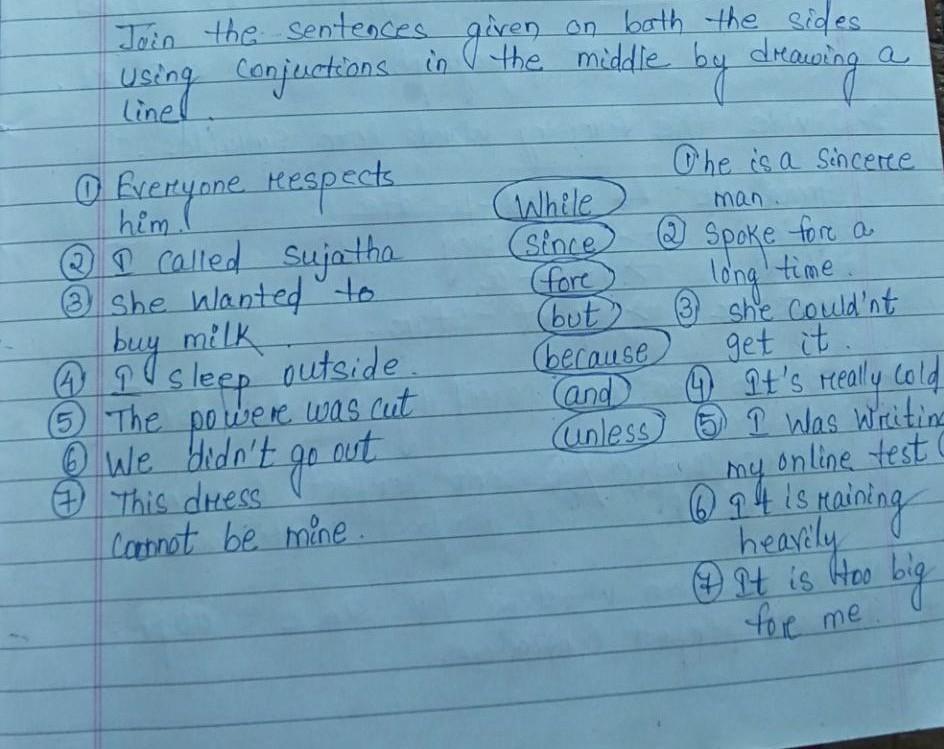 Join the sentences given on both the sides
using conjuctions in the middle by drawing a
line.
① Everyone respects
him.
② I called sujatha
③ she wanted to
buy milk
④ I sleep outside.
⑤ The power was cut
⑥ We didn't go out
⑦ This dress
cannot be mine.
While
since
for
but
because
and
unless
① he is a sincere
man.
② spoke for a
long time.
③ she could'nt
get it.
④ It's really cold
⑤ I was writing
my online test
⑥ It is raining
heavily
⑦ It is too big
for me.